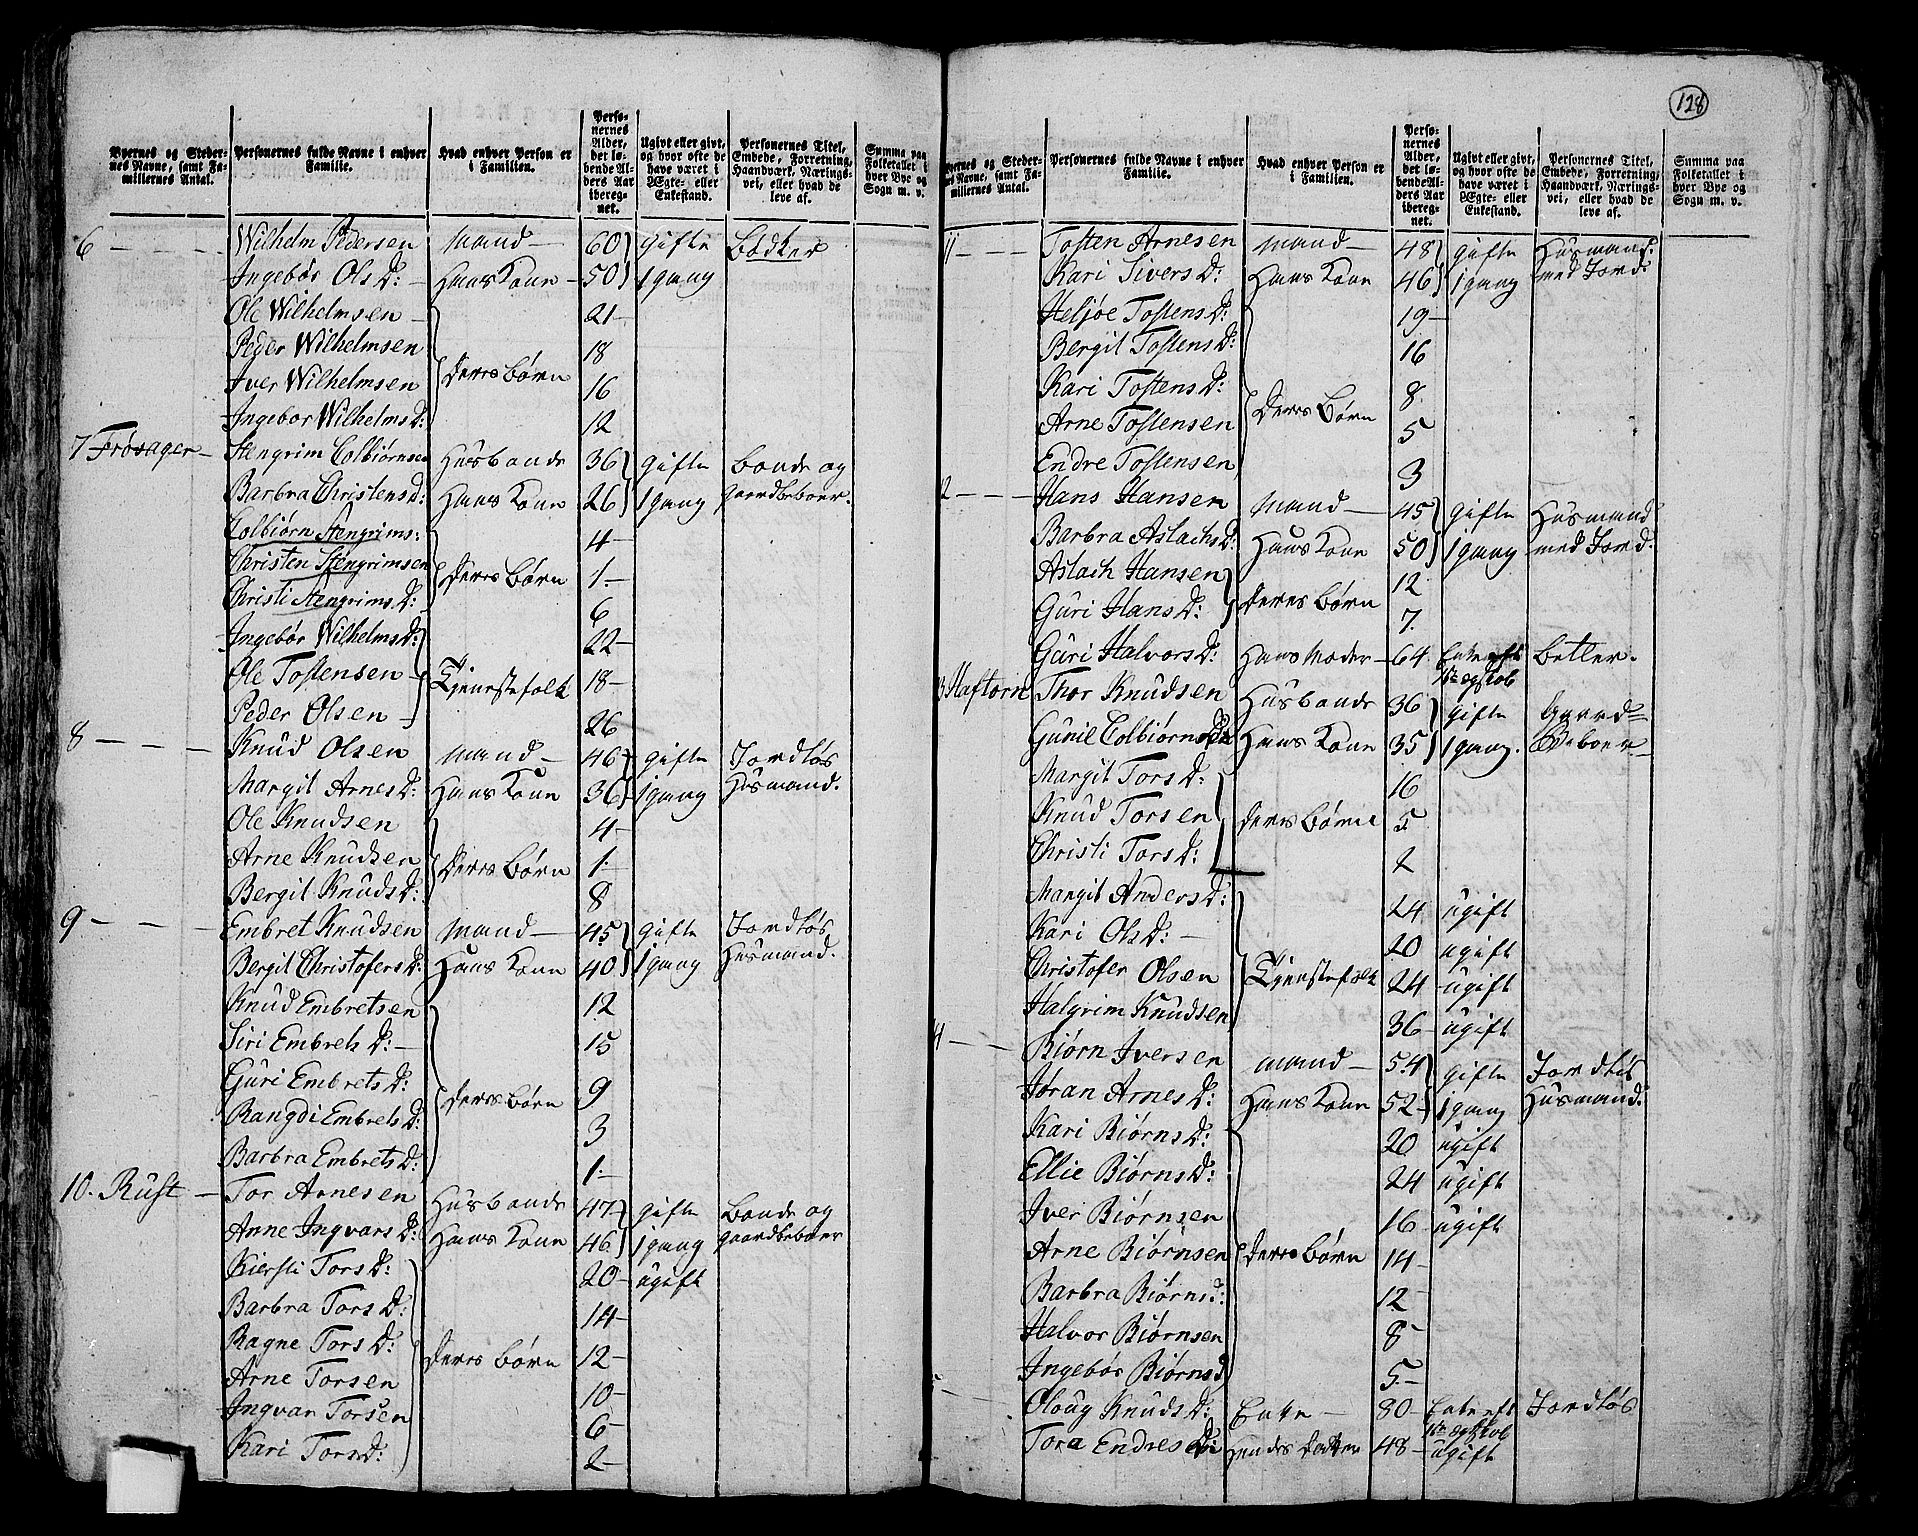 128
Byernes og Steder- nes Navne, samt Fa- millernes Antal. | Personernes fulde Navne i enhver Familie. | Hvad enhver Person er i Familien. | Perso- nernes Alder, det lø- bende Al- ders Aar ibereg- net. | Ugivt eller givt, og hvor ofte de have været i Ægte- eller Enkestand. | Personernes Titel, Embede, Forretning, Haandværk, Nærings- vei, eller hvad de leve af. | Summa paa Folketallet i hver Bye og Sogn m. v.
6 — — — Wilhelm Pedersen Mand — 60 gifte Bødker
Ingebør Ols D: — Hans Kone — 50 1 gang
Ole Wilhelmsen — 21 —
Peder Wilhelmsen 18
Iver Wilhelmsen Deres Børn 16
Ingebor Wilhelms D: 12
7 Frøsager — Stengrim Colbiørnsen Husbonde 36 gifte Bonde og
Barbra Christens D: Hans Kone 26 1 gang gaardbeboer.
Colbiørn Stengrims: 4 —
Christen Stengrimsen Deres Børn 1. —
Christi Stengrims D: 6
Ingebør Wilhelms D: 22 —
Ole Tostensen — Tjenestefolk 18 —
Peder Olsen — 26
8 — — — Knud Olsen Mand — 46 gifte Jordløs
Margit Arnes D: Hans Kone 36 1 gang Husmand.
Ole Knudsen 4 —
Arne Knudsen Deres Børn 1. —
Bergit Knuds D: 8
9 — — — Embret Knudsen Mand — 45 gifte Jordløs
Bergit Christofers D: Hans Kone 40 1 gang Husmand.
Knud Embretsen 12
Siri Embrets D: — 15
Guri Embrets D: Deres Børn 9
Rangdi Embrets D: 3
Barbra Embrets D: 1. —
10. Rust — Tor Arnesen Husbonde 47 gifte Bonde og
Anne Ingvars D: Hans Kone 46 1 gang gaardbeboer
Kiersti Tors D: 20 — ugift
Barbra Tors D: 14 —
Ragne Tors D: Deres Børn 12 —
Arne Torsen 10 —
Ingvar Torsen 6 —
Kari Tors D: 2 —
Byernes og Steder- nes Navne, samt Fa- millernes Antal. | Personernes fulde Navne i enhver Familie. | Hvad enhver Person er i Familien. | Perso- nernes Alder, det lø- bende Al- ders Aar ibereg- net. | Ugivt eller givt, og hvor ofte de have været i Ægte- eller Enkestand. | Personernes Titel, Embede, Forretning, Haandværk, Nærings- vei, eller hvad de leve af. | Summa paa Folketallet i hver Bye og Sogn m. v.
11 — — — Tosten Arnesen Mand — 48 gifte Husmand
Kari Sivers D: Hans Kone 46 1 gang med Jord.
Heljøe Tostens D: 19 —
Bergit Tostens D: 16
Kari Tostens D: Deres Børn 8.
Arne Tostensen 5
Endre Tostensen 3
2 — — — Hans Hansen Mand — 45 gifte Husmand
Barbra Aslachs D: Hans Kone 50 1 gang med Jord.
Aslach Hansen Deres Børn 12
Guri Hans D: 7.
Guri Halvors D: Hans Moder — 64. Enke eft 1ste Ægteskab Betler.
3 Haftorn Thor Knudsen Husbonde 36 gifte Gaard=
Gunil Colbiørns D: Hans Kone 35 1 gang. Beboer —
Margit Tors D: 16
Knud Torsen Deres Børn 5
Christi Tors D: 2
Margit Anders D: 24 ugift
Kari Ols D: — 20 ugift
Christofer Olsen Tjenestefolk 24 ugift
Halgrim Knudsen 36 — ugift
4 — — — Biørn Iversen Mand — 54 gifte Jordløs
Jøran Arnes D: Hans Kone 52 1 gang Husmand.
Kari Biørns D: 20 ugift
Ellie Biørns D: 24 ugift
Iver Biørnsen 16 — ugift
Arne Biørnsen Deres Børn 14 —
Barbra Biørns D: 12 —
Halvor Biørnsen 8 —
Ingebør Biørns D 5. —
Oloug Knuds D: Enke — 80 — Enke eft 1ste Ægteskab Jordløs
Tora Endres D: Hendes Datter 48 — ugift